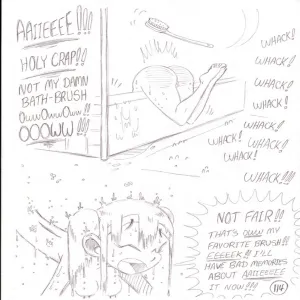 AAIIEEEE!!!
HOLY CRAP!!
NOT MY DAMN
BATH-BRUSH
OwwOwwOww!!
OOOWW!!!
WHACK!
WHACK!!
WHACK!!
WHACK!!
WHACK!!
WHACK!
WHACK!!
WHACK!
WHACK!!
NOT FAIR!!!
THAT'S MY
FAVORITE BRUSH!!
EEEEEK!! I'LL
HAVE BAD MEMORIES
ABOUT AAIIEEEEE
IT NOW!!!
114